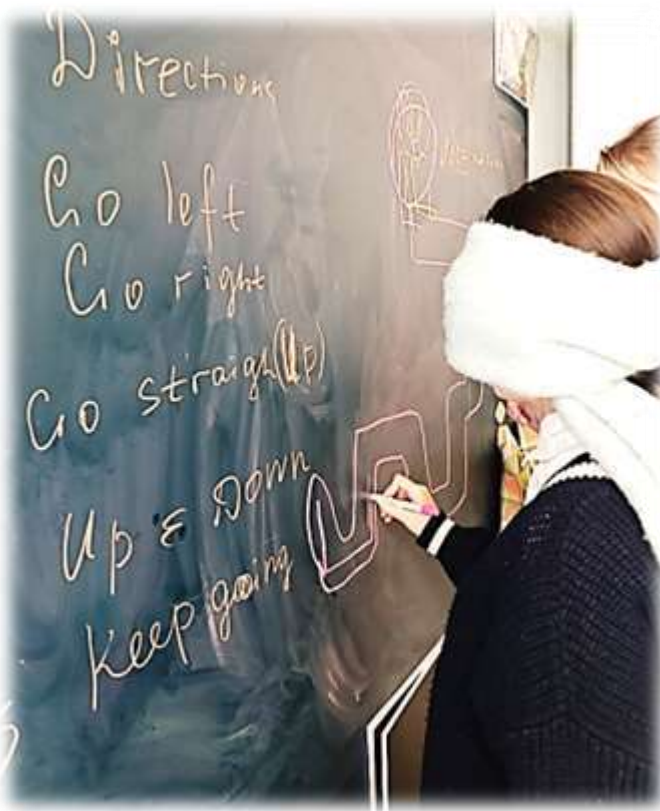 Directions
Go left
Go right
Go straigh(Up)
Up & Down
Keep going